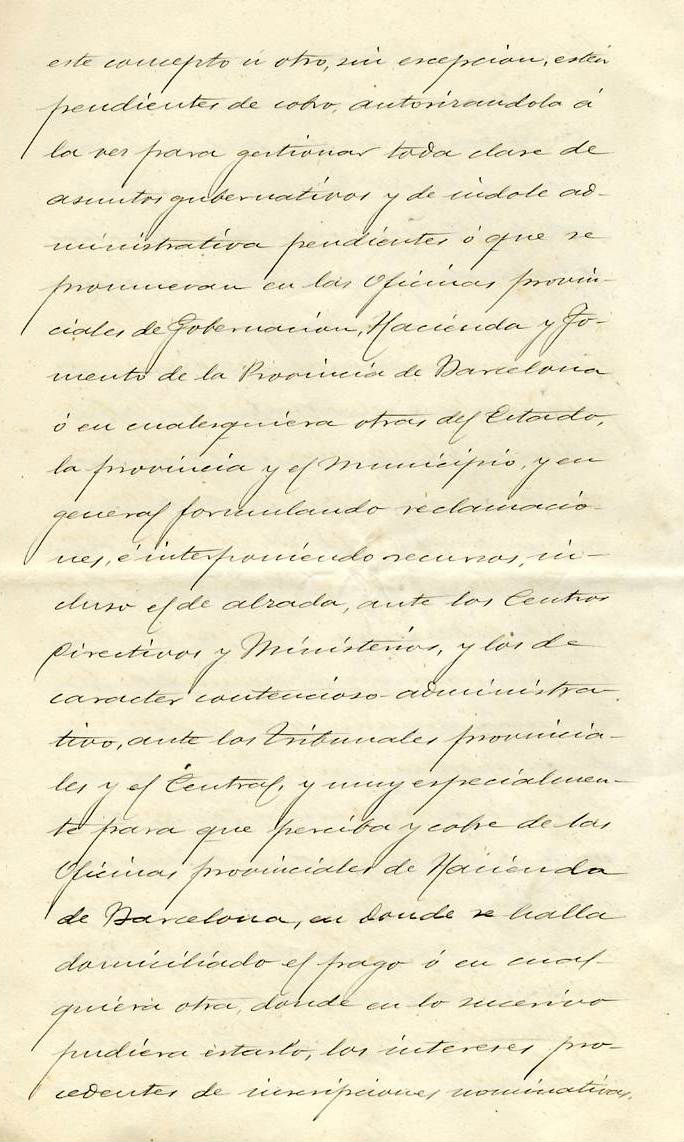 este concepto ú otro, sin escepcion, estén
pendientes de cobro, autorizandola á
la vez para gestionar toda clase de
asuntos gubernativos y de indole ad-
ministrativa pendientes ó que se
promuevan en las Oficinas provin-
ciales de Gobernacion, Hacienda y Fo-
mento de la Provincia de Barcelona
ó en cualesquiera otras del Estado,
la provincia y el Municipio, y en
general formulando reclamacio-
nes, é interponiendo recursos, in-
cluso el de alzada, ante los Centros
Directivos y Ministerios, y los de
caracter contencioso-administra-
tivo, ante los Tribunales provincia-
les y el Central, y muy especialmen-
te para que perciba y cobre de las
Oficinas provinciales de Hacienda
de Barcelona, en donde se halla
domiciliado el pago ó en cual-
quiera otra, donde en lo sucesivo
pudiera estarlo, los intereses pro-
cedentes de inscripciones nominativas,